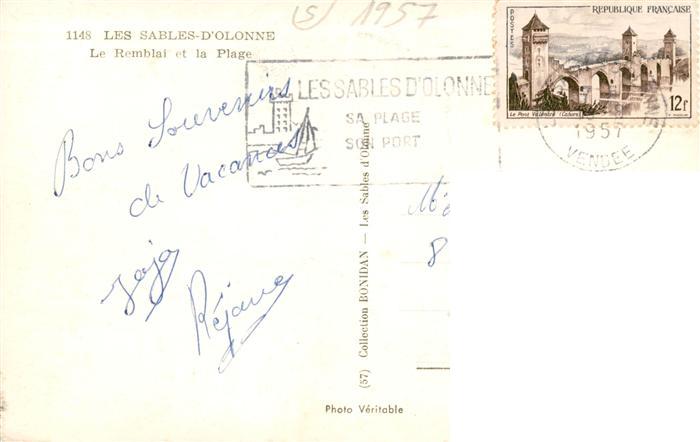 (S) 1957
1148 LES SABLES-D'OLONNE
Le Remblai et la Plage
LES SABLES D'OLONNE
SA PLAGE
SON PORT
POSTES
REPUBLIQUE FRANÇAISE
12F
Le Pont Valentré (Cahors)
1957
VENDEE
Bons Souvenirs
de Vacances
Réjane
8
(57) Collection BONIDAN — Les Sables d'Olonne
Photo Véritable